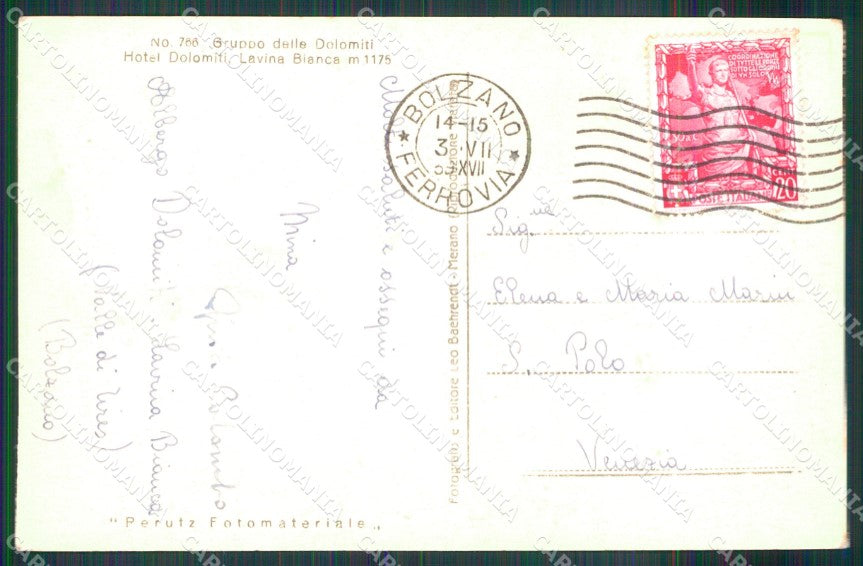 No. 766 Gruppo delle Dolomiti
Hotel Dolomiti, Lavina Bianca m 1175
Molti saluti e ossequi da
Nina
Colombo
Albergo Dolomiti Lavina Bianca
(Valle di Tires)
(Bolzano)
"Perutz Fotomateriale"
Fotografia e Editore Leo Baehrendt - Merano
BOLZANO
14-15
3 VII
39 XVII
FERROVIA
COORDINAZIONE
DI TUTTE LE FORZE
SOTTO GLI ORDINI
DI UN SOLO
POSTE ITALIANE
20
Sig.ne
Elena e Maria Marin
S. Polo
Venezia
CARTOLINOMANIA